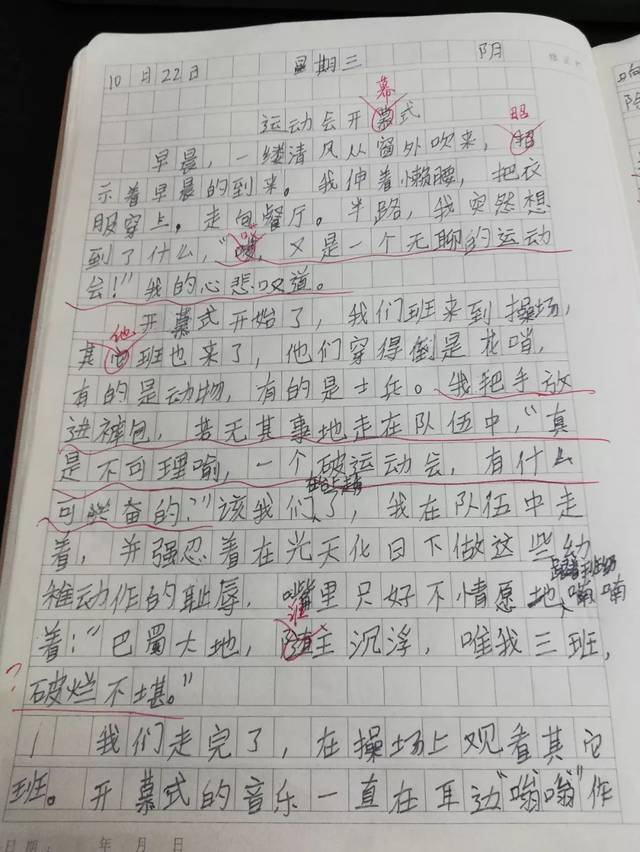 10月22日 星期三 阴
幕
运动会开幕式
昭
早晨，一缕清风从窗外吹来，
示着早晨的到来。我伸着懒腰，把衣
服穿上，走向餐厅。半路，我突然想
到了什么，“唉，又是一个无聊的运动
会！”我的心悲叹道。
开幕式开始了，我们班来到操场，
他
其它班也来了，他们穿得倒是花哨，
有的是动物，有的是士兵。我把手放
进裤包，若无其事地走在队伍中，“真
是不可理喻，一个破运动会，有什么
可兴奋的？”该我们了，我在队伍中走
着，并强忍着在光天化日下做这些幼
稚动作的耻辱，嘴里只好不情愿地喃喃
谁
着：“巴蜀大地，主沉浮，唯我三班，
？破烂不堪。”
我们走完了，在操场上观看其它
班。开幕式的音乐一直在耳边“嗡嗡”作
日期： 年 月 日